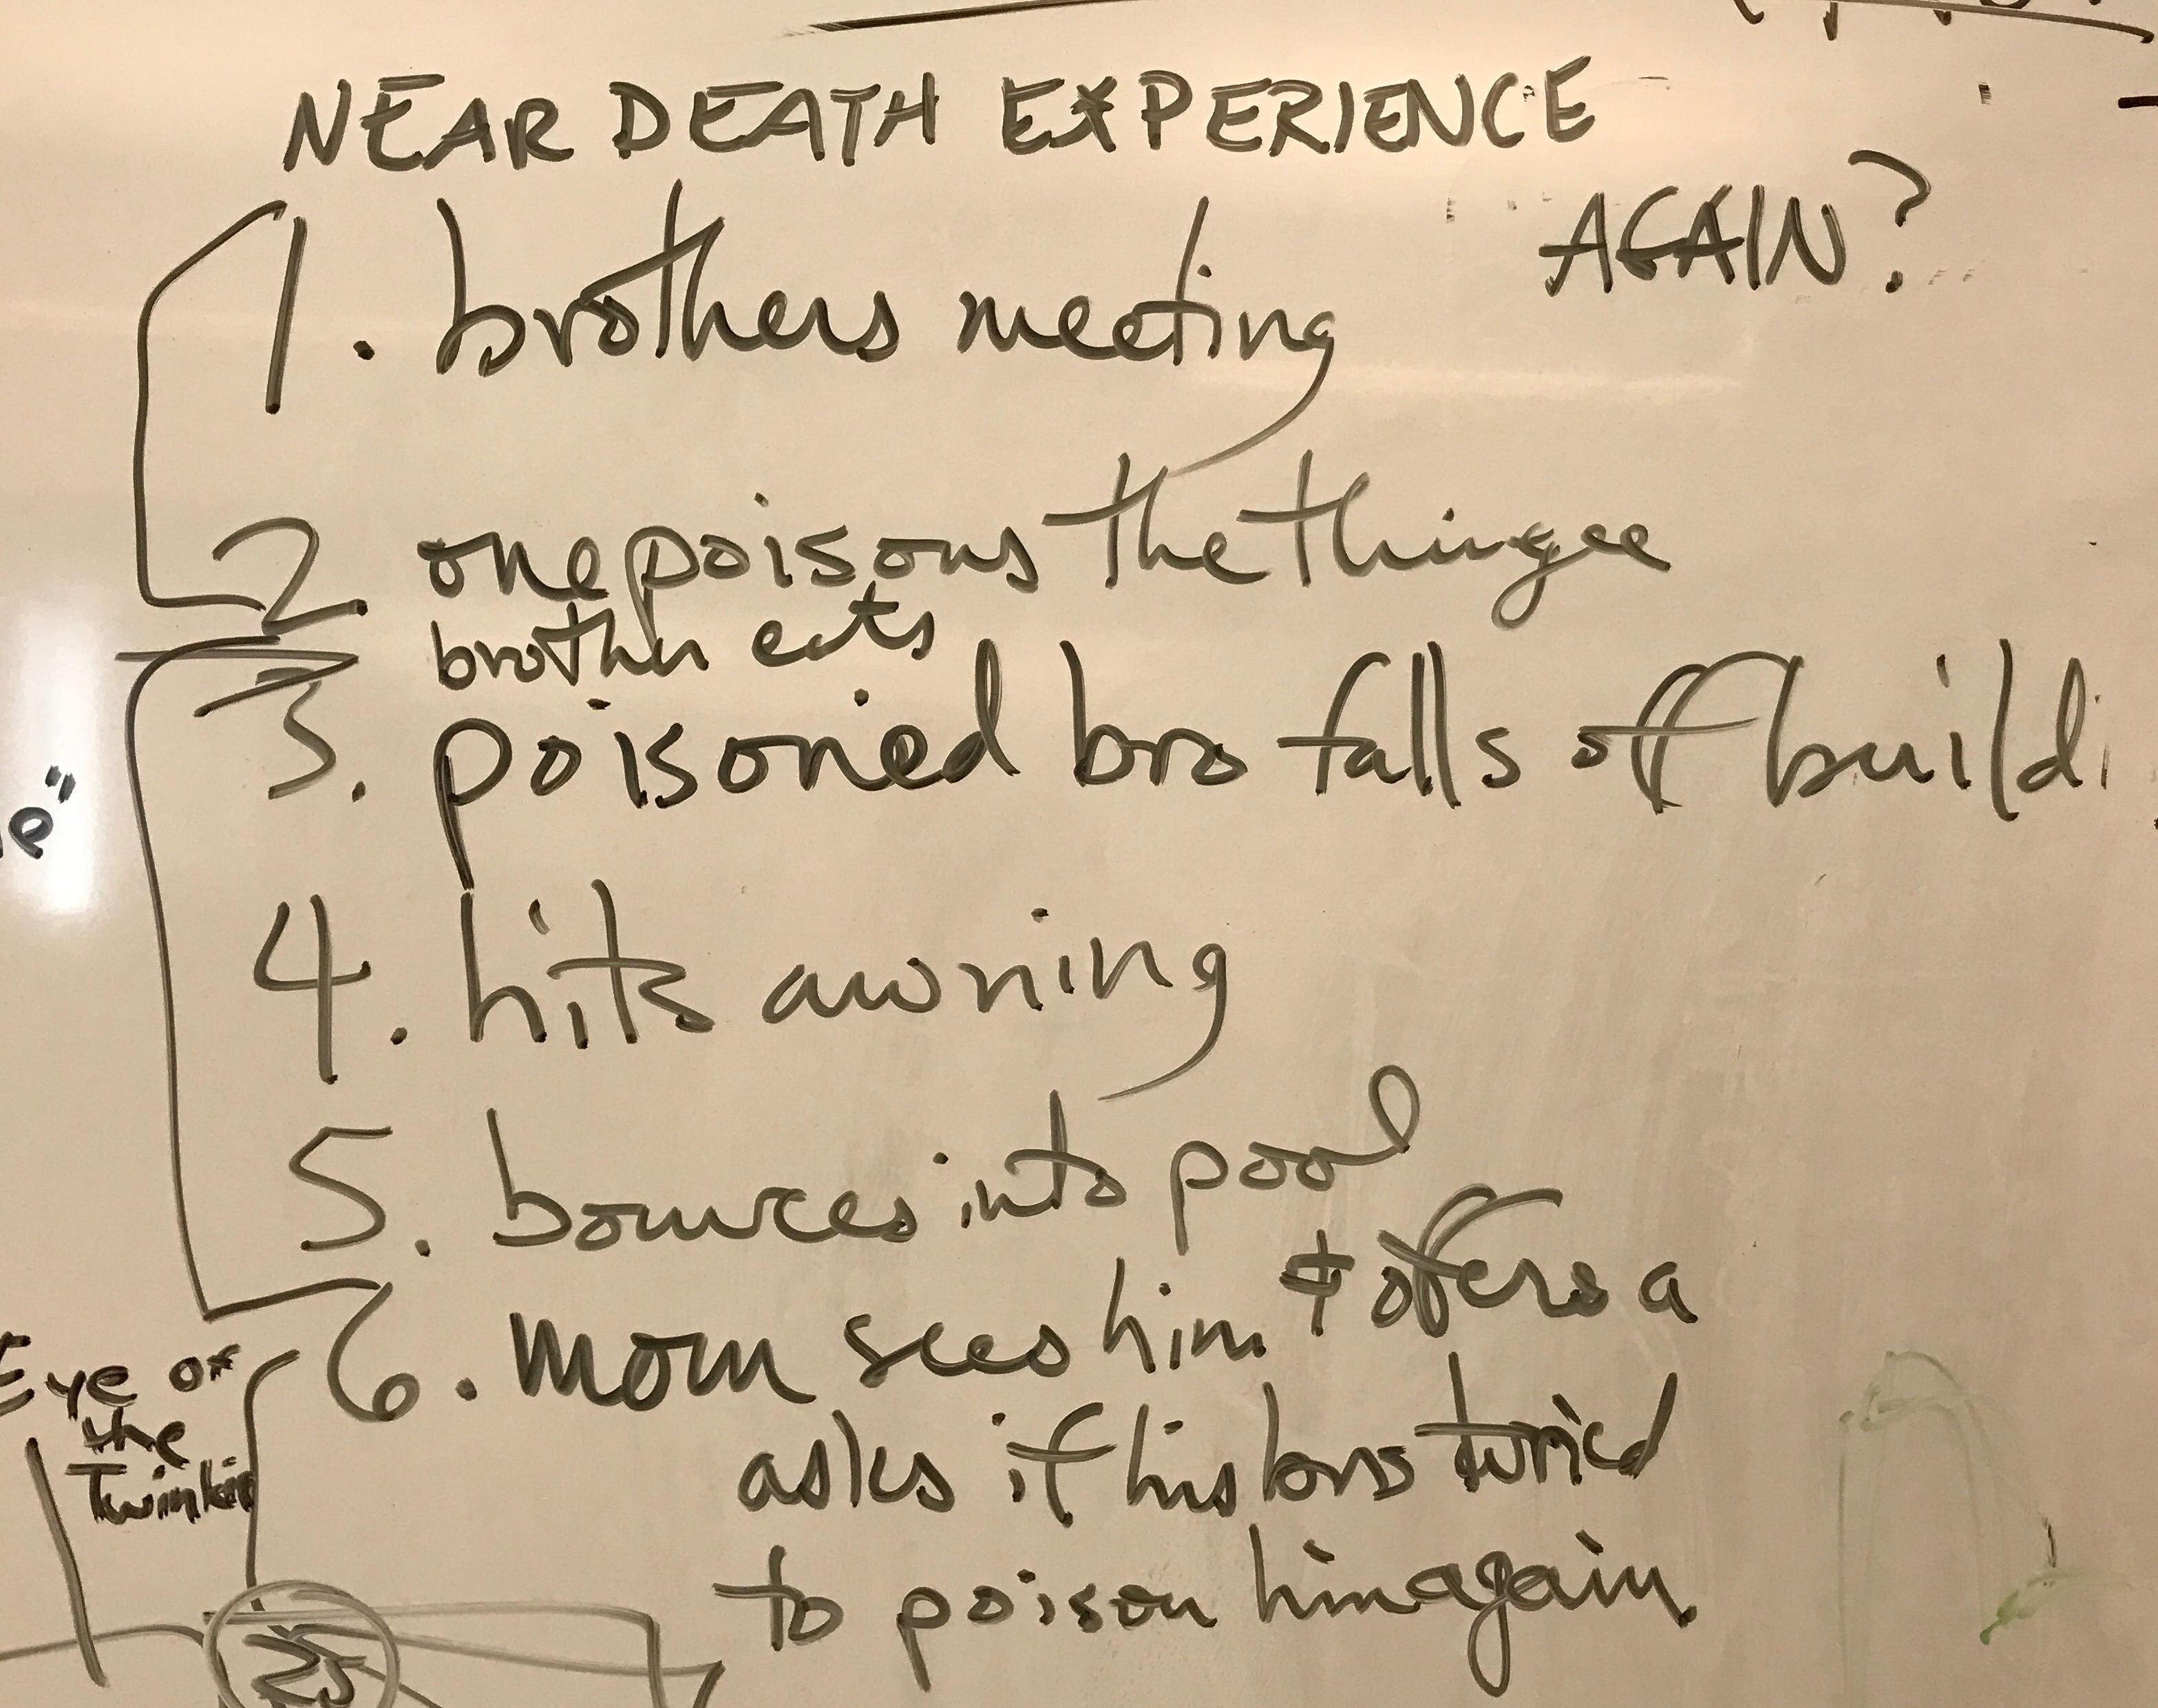 NEAR DEATH EXPERIENCE
AGAIN?
1. brothers meeting
2. one poisons the thingee
brother eats
3. poisoned bro falls off buildi
4. hits awning
5. bounces into pool
6. mom sees him & offers a
asks if his bros turied
to poison him again.
e"
Eye of
the
Twinkie
25